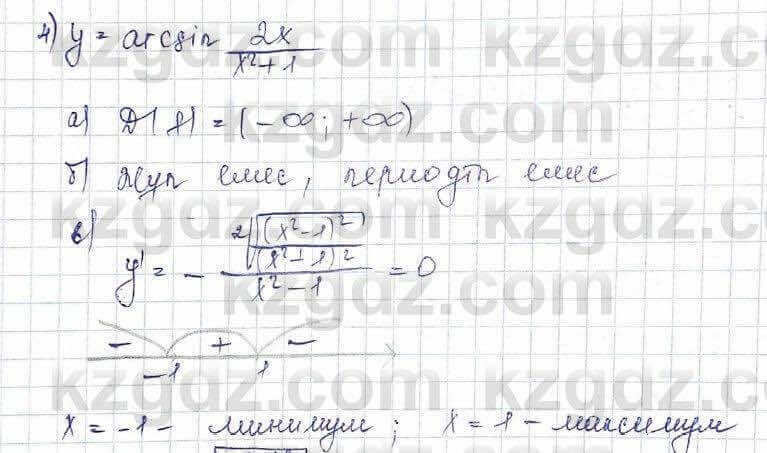 4) y = arcsin 2x/(x²+1)
а) D(y) = (-∞; +∞)
б) жұп емес, периодты емес
в) y' = - (2√((x²-1)²/(x²+1)²))/(x²-1) = 0
- + -
-1 1
x = -1 - минимум; x = 1 - максимум
kzgdz.com kzgdz.com
kzgdz.com kzgdz.com
kzgdz.com kzgdz.com
kzgdz.com kzgdz.com
kzgdz.com kzgdz.com